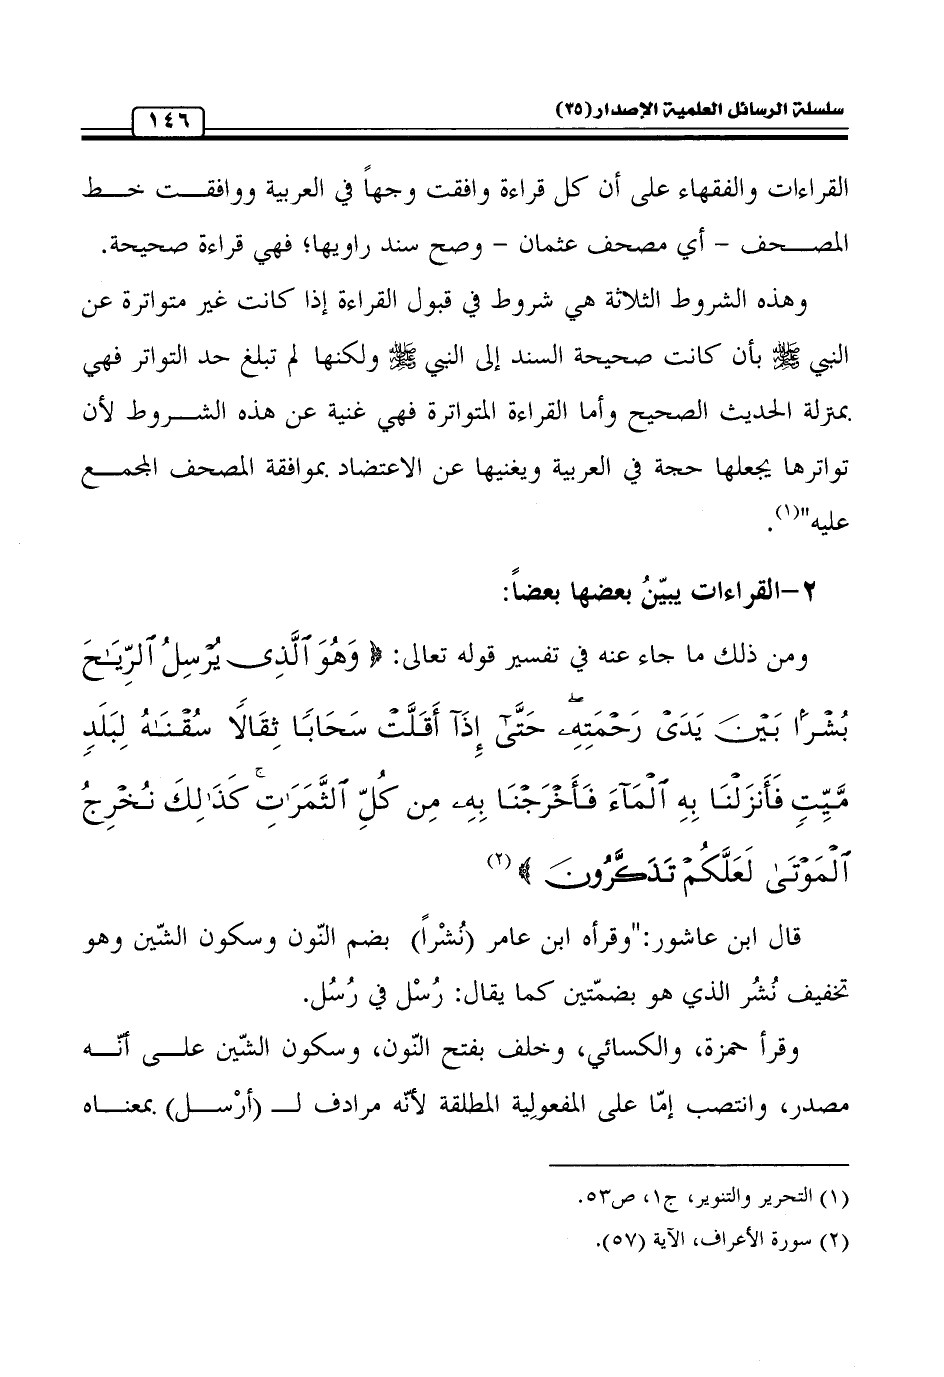 سلسلة الرسائل العلمية الإصدار (٣٥)
١٤٦
القراءات والفقهاء على أن كل قراءة وافقت وجهاً في العربية ووافقت خط
المصحف - أي مصحف عثمان - وصح سند راويها؛ فهي قراءة صحيحة.
وهذه الشروط الثلاثة هي شروط في قبول القراءة إذا كانت غير متواترة عن
النبي ﷺ بأن كانت صحيحة السند إلى النبي ﷺ ولكنها لم تبلغ حد التواتر فهي
بمنزلة الحديث الصحيح وأما القراءة المتواترة فهي غنية عن هذه الشروط لأن
تواترها يجعلها حجة في العربية ويغنيها عن الاعتضاد بموافقة المصحف المجمع
عليه"(١).
٢-القراءات يبيّنُ بعضها بعضاً:
ومن ذلك ما جاء عنه في تفسير قوله تعالى: ﴿ وَهُوَ ٱلَّذِى يُرْسِلُ ٱلرِّيَٰحَ
بُشْرًۢا بَيْنَ يَدَىْ رَحْمَتِهِۦ ۖ حَتَّىٰٓ إِذَآ أَقَلَّتْ سَحَابًا ثِقَالًا سُقْنَٰهُ لِبَلَدٍ
مَّيِّتٍ فَأَنزَلْنَا بِهِ ٱلْمَآءَ فَأَخْرَجْنَا بِهِۦ مِن كُلِّ ٱلثَّمَرَٰتِ ۚ كَذَٰلِكَ نُخْرِجُ
ٱلْمَوْتَىٰ لَعَلَّكُمْ تَذَكَّرُونَ ﴾(٢)
قال ابن عاشور:"وقرأه ابن عامر (نُشْراً) بضم النّون وسكون الشّين وهو
تخفيف نُشُر الذي هو بضمّتين كما يقال: رُسْل في رُسُل.
وقرأ حمزة، والكسائي، وخلف بفتح النّون، وسكون الشّين على أنّه
مصدر، وانتصب إمّا على المفعولِية المطلقة لأنّه مرادف لـ (أرْسل) بمعناه
(١) التحرير والتنوير، ج١، ص٥٣.
(٢) سورة الأعراف، الآية (٥٧).